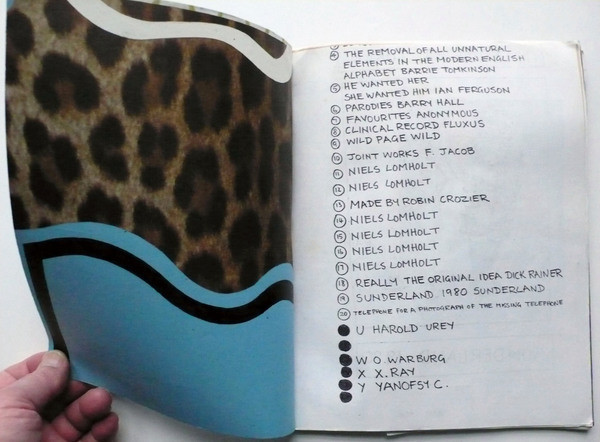 ④ THE REMOVAL OF ALL UNNATURAL
ELEMENTS IN THE MODERN ENGLISH
ALPHABET BARRIE TOMKINSON
⑤ HE WANTED HER
SHE WANTED HIM IAN FERGUSON
⑥ PARODIES BARRY HALL
⑦ FAVOURITES ANONYMOUS
⑧ CLINICAL RECORD FLUXUS
⑨ WILD PAGE WILD
⑩ JOINT WORKS F. JACOB
⑪ NIELS LOMHOLT
⑫ NIELS LOMHOLT
⑬ MADE BY ROBIN CROZIER
⑭ NIELS LOMHOLT
⑮ NIELS LOMHOLT
⑯ NIELS LOMHOLT
⑰ NIELS LOMHOLT
⑱ REALLY THE ORIGINAL IDEA DICK RAINER
⑲ SUNDERLAND 1980 SUNDERLAND
⑳ TELEPHONE FOR A PHOTOGRAPH OF THE MISSING TELEPHONE
U HAROLD UREY
W O WARBURG
X X. RAY
Y YANOFSY C.